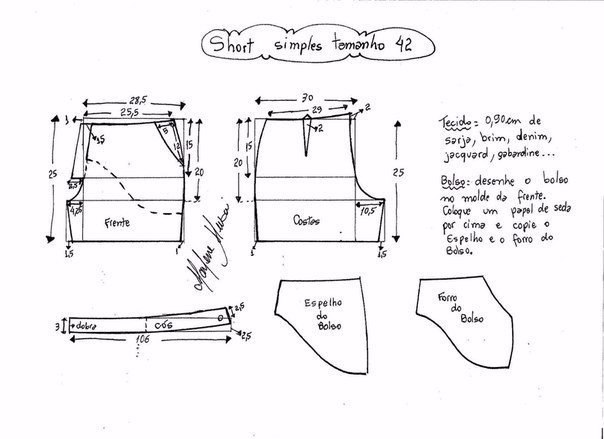 Short simples tamanho 42
28,5
25,5
1
3,5
5
12
15
20
25
3,5
4,25
Frente
1,5
1
30
29
2
2
15
20
20
25
10,5
Costas
1,5
Tecido = 0,90cm de
sarja, brim, denim,
jacquard, gabardine...
Bolso: desenhe o bolso
no molde da frente.
Coloque um papel de seda
por cima e copie o
Espelho e o forro do
Bolso.
3
dobra
cós
2,5
2,5
106
Espelho
do
Bolso
Forro
do
Bolso